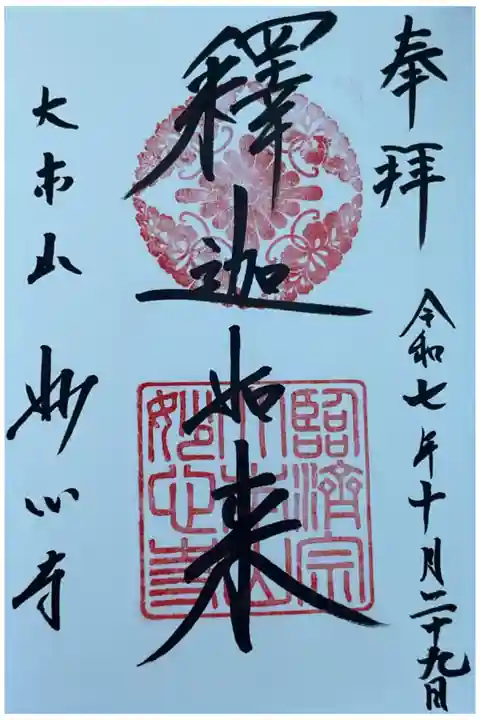 奉拜
令和七年十月二十九日
釋迦如来
臨濟宗
大本山
妙心寺
大本山 妙心寺